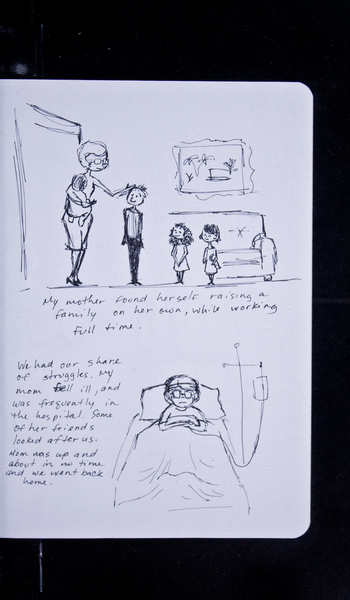 My mother found herself raising a
family on her own, while working
full time.
We had our share
of struggles. My
mom fell ill, and
was frequently in
the hospital. Some
of her friends
looked after us.
Mom was up and
about in no time
and we went back
home.